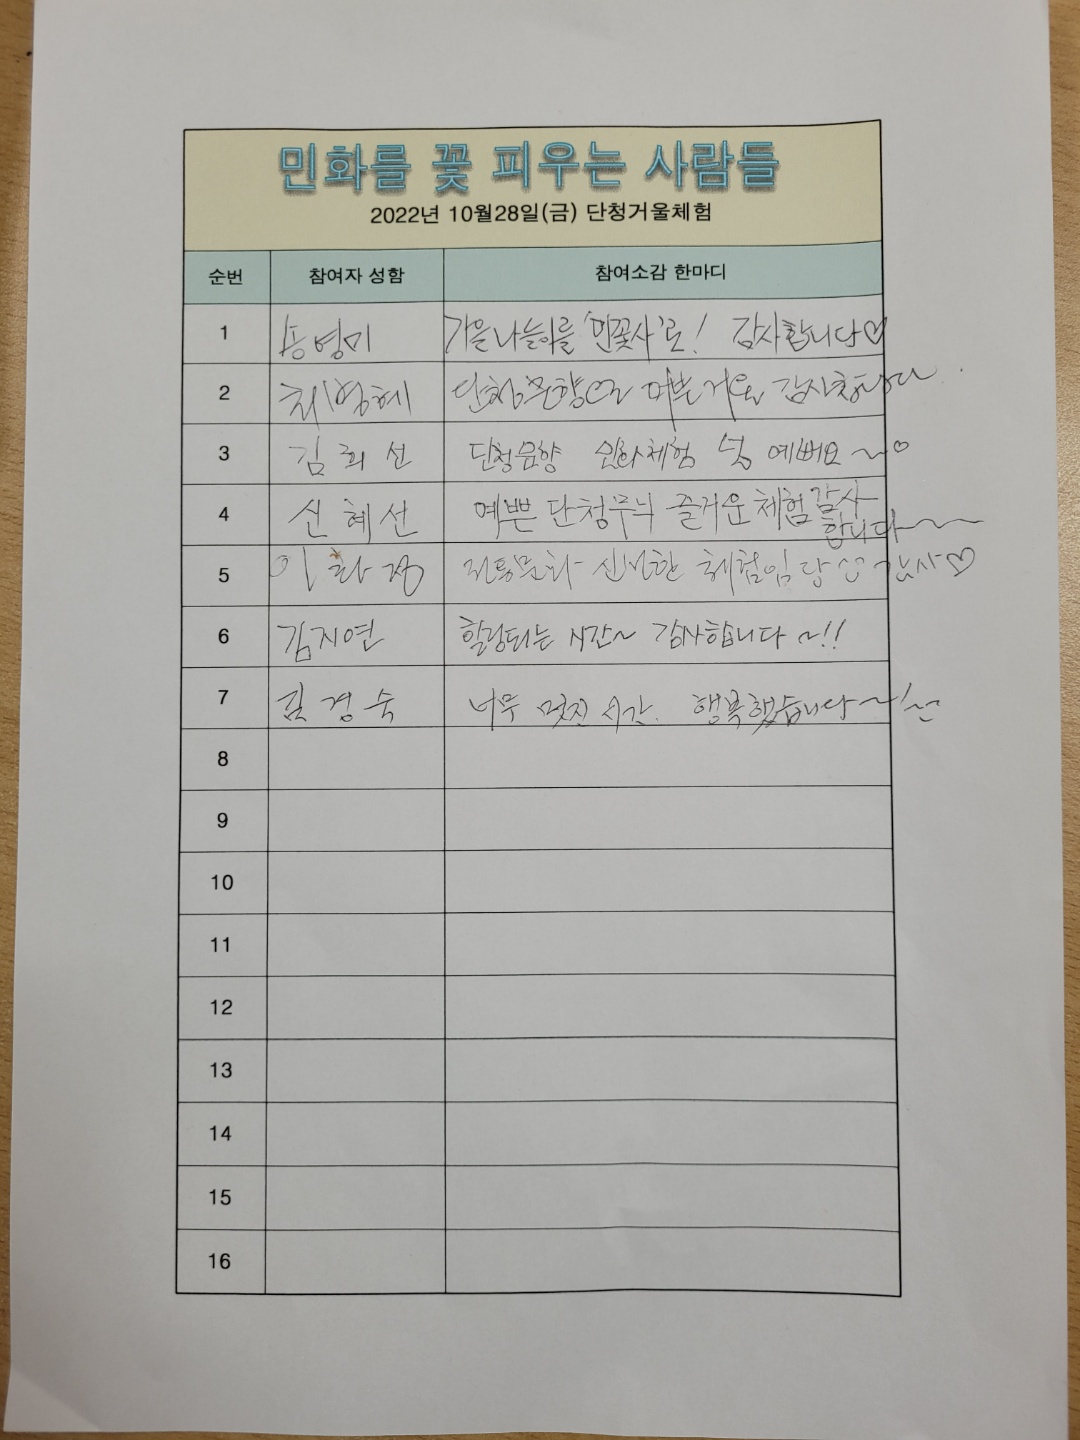 민화를 꽃 피우는 사람들
2022년 10월28일(금) 단청거울체험
순번 참여자 성함 참여소감 한마디
1 송영미 가을나들이를 '민꽃사'로! 감사합니다♡
2 최명혜 단청문향으로 예쁜거울 감사합니다
3 김희선 단청문향 민화체험 넘 예뻐요~♡
4 신혜선 예쁜 단청무늬 즐거운 체험 감사
합니다~~
5 이화정 전통문화 신비한 체험임당 감사♡
6 김지연 힐링되는 시간~ 감사합니다~!!
7 김경숙 너무 멋진 시간. 행복했습니다~!~
8
9
10
11
12
13
14
15
16